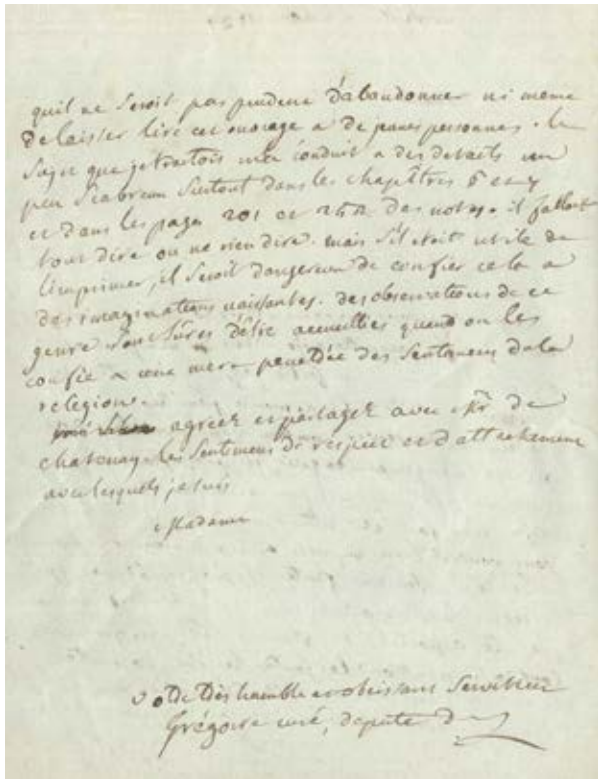 quil ne seroit pas prudent d'abandonner ni meme
de laisser lire cet ouvrage a de jeunes personnes. le
sujet que je traitois m'a conduit a des details un
peu scabreux surtout dans les chapîtres 6 et 7
et dans les pages 201 et des notes. il falloit
tout dire ou ne rien dire. mais s'il etoit utile de
l'imprimer, il seroit dangereux de confier cela a
des imaginations naissantes. des observations de ce
genre sont sûres d'être accueillies quand on les
confie a une mere penetrée des sentimens de la
religion.
agréez et partagez avec Mr de
chatenay les sentimens de respect et d'attachement
avec lesquels je suis
Madame
votre très humble et obeissant serviteur
Grégoire curé, deputé